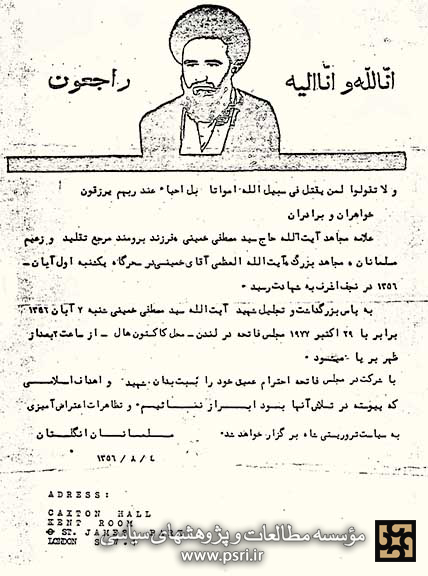 انّاللّه و انّاالیه راجعون
و لا تقولوا لمن یقتل فی سبیل الله امواتا بل احیاء عند ربهم یرزقون
خواهران و برادران
علامه مجاهد آیت‌الله حاج سید مصطفی خمینی فرزند برومند مرجع تقلید و زعیم
مسلمانان و مجاهد بزرگ آیت‌الله العظمی آقای خمینی در سحرگاه یکشنبه اول آبان -
۱۳۵۶ در نجف اشرف به شهادت رسید .
به پاس بزرگداشت و تجلیل شهید آیت‌الله سید مصطفی خمینی شنبه ۷ آبان ۱۳۵۶
برابر با ۲۹ اکتبر ۱۹۷۷ مجلس فاتحه در لندن - محل کاکستون هال - از ساعت بعداز
ظهر برپا میشود .
با شرکت در مجلس فاتحه احترام عمیق خود را نسبت بدان شهید و اهداف اسلامی
که پیوسته در تلاش آنها بود ابراز نمائیم . و تظاهرات اعتراض آمیزی
به سیاست تروریستی شاه برگزار خواهد شد .
مسلمانان انگلستان
۱۳۵۶ / ۸ /
ADRESS:
CAXTON HALL
KENT ROOM
ST. JAMES PARK
LONDON S.W.1
مؤسسه مطالعات و پژوهشهای سیاسی
www.psri.ir